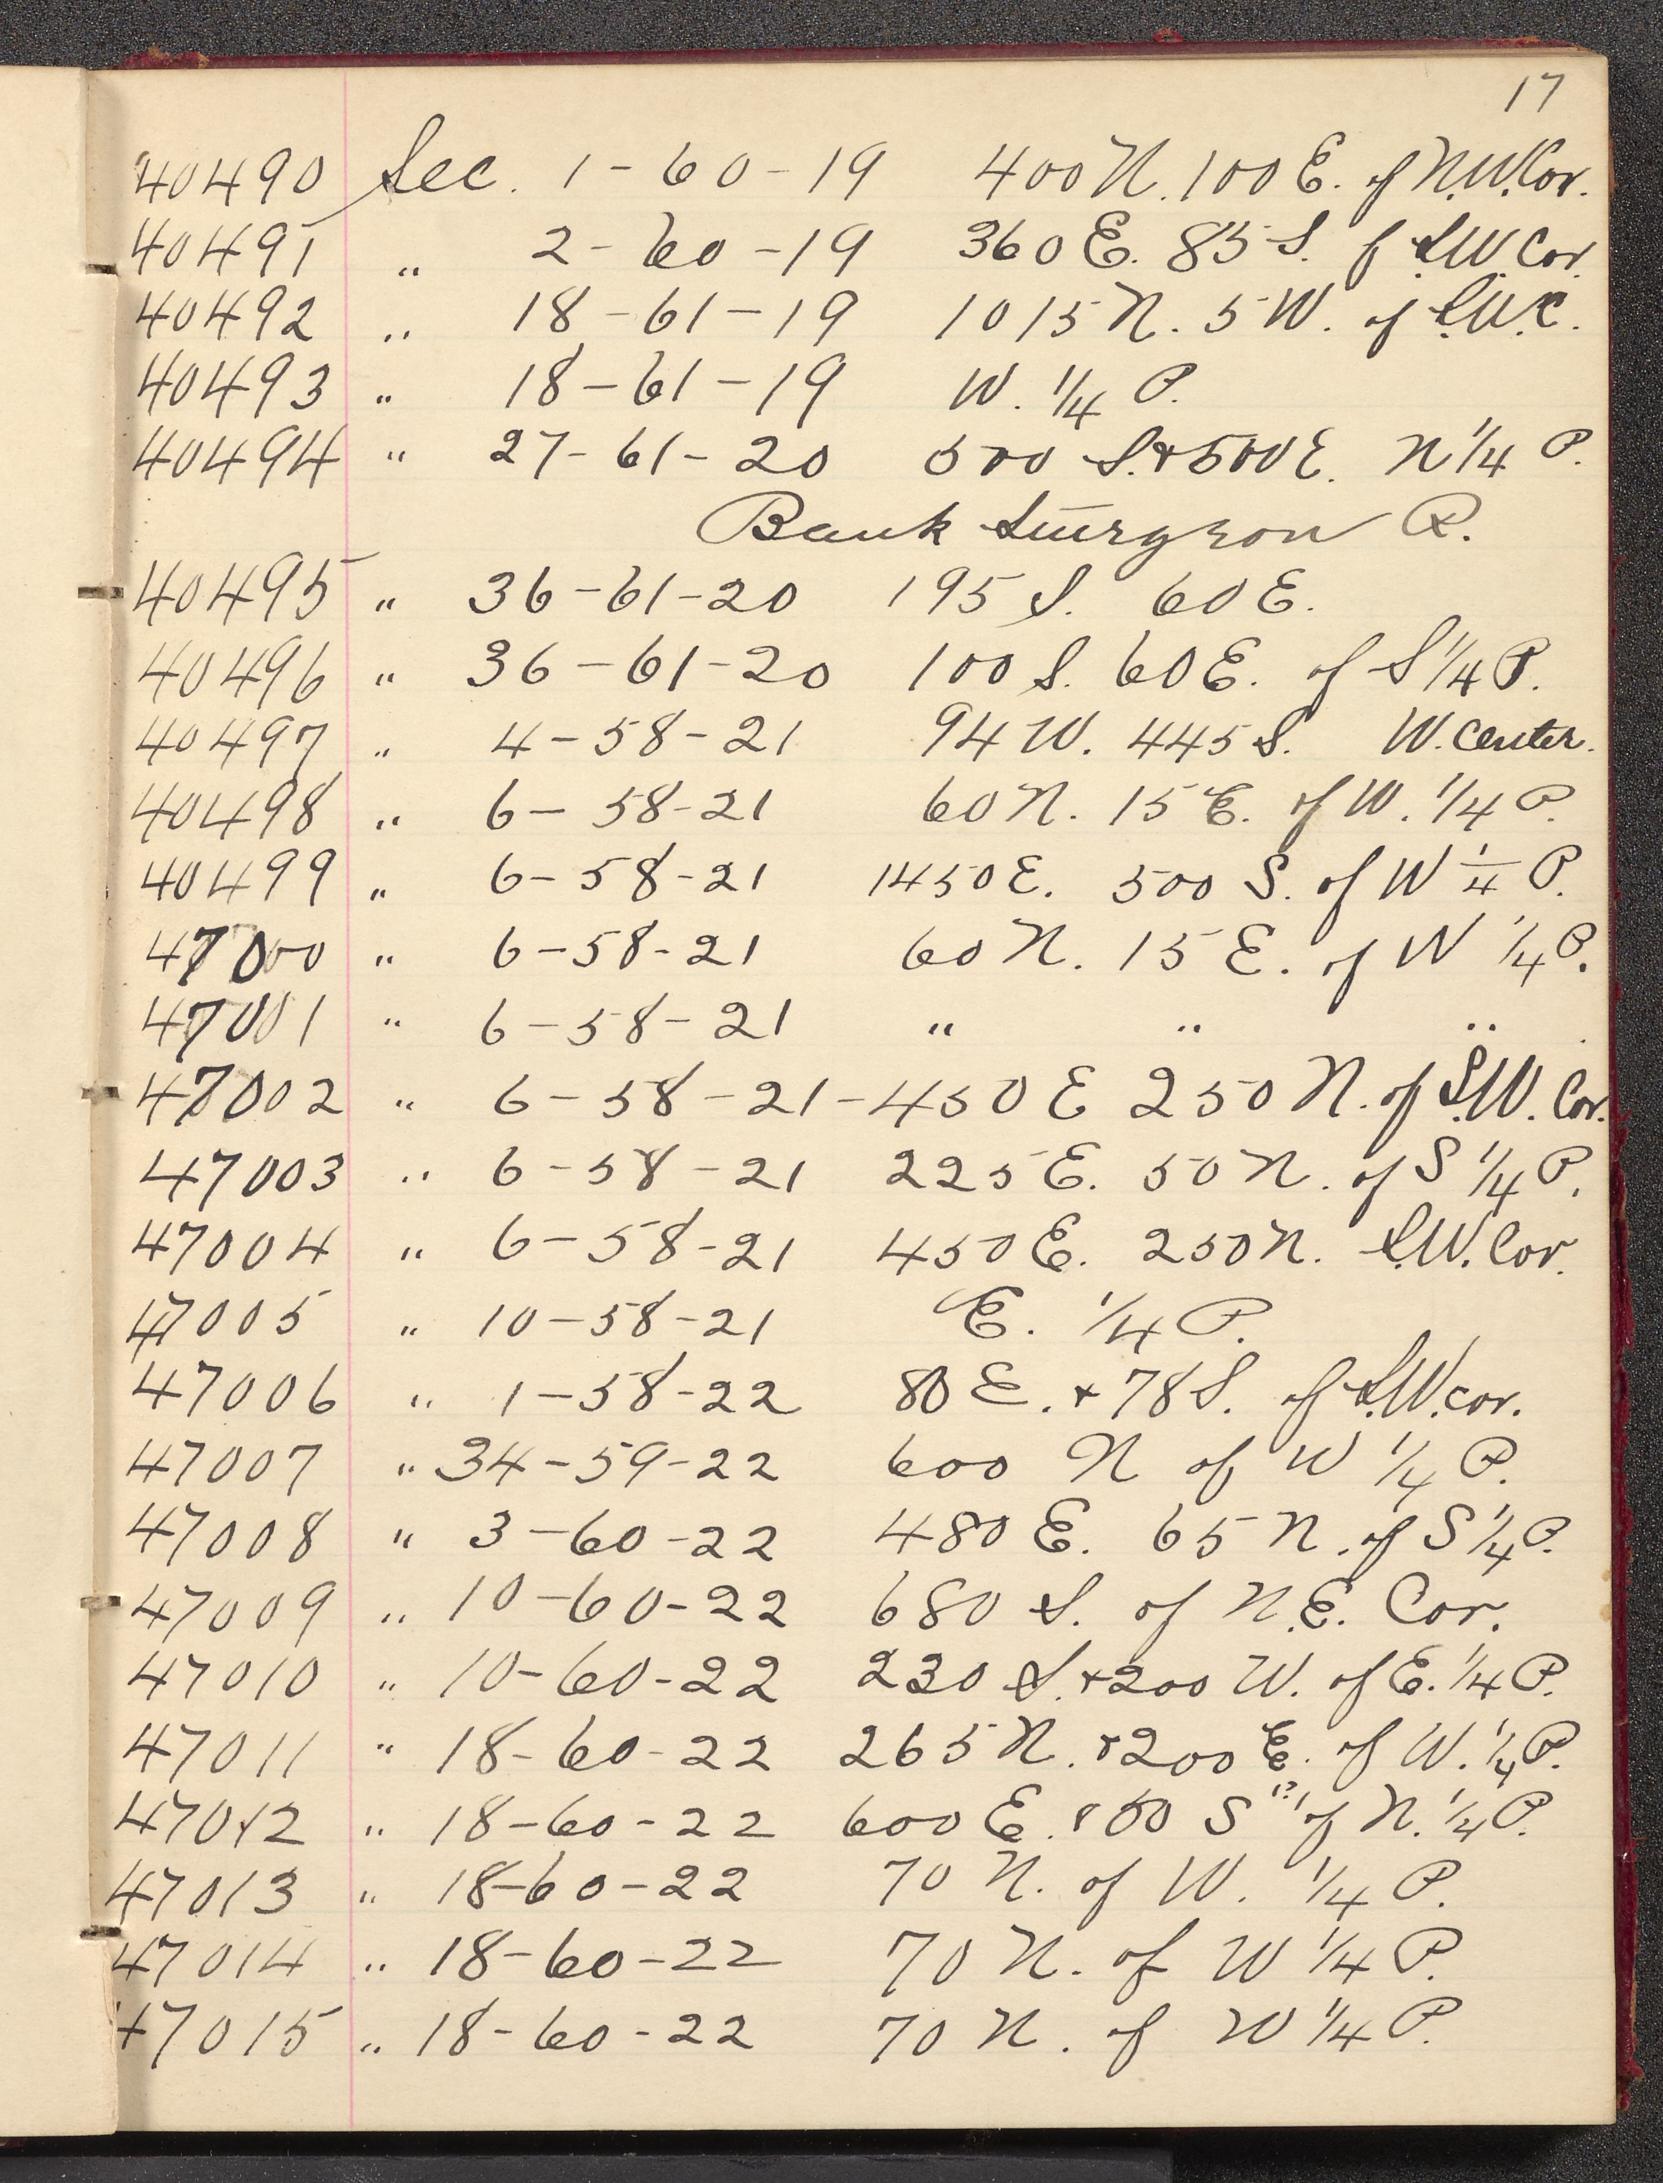 17
40490 Sec. 1-60-19 400 N. 100 E. of N.W. Cor.
40491 " 2-60-19 360 E. 85 S. of S.W. Cor.
40492 " 18-61-19 1015 N. 5 W. of S.W.C.
40493 " 18-61-19 W. 1/4 P.
40494 " 27-61-20 500 S. & 500 E. N 1/4 P.
Bank Sturgeon R.
40495 " 36-61-20 195 S. 60 E.
40496 " 36-61-20 100 S. 60 E. of S 1/4 P.
40497 " 4-58-21 94 W. 445 S. W. Center.
40498 " 6-58-21 60 N. 15 E. of W. 1/4 P.
40499 " 6-58-21 1450 E. 500 S. of W 1/4 P.
47000 " 6-58-21 60 N. 15 E. of W 1/4 P.
47001 " 6-58-21 " " "
47002 " 6-58-21-450 E 250 N. of S.W. Cor.
47003 " 6-58-21 225 E. 50 N. of S 1/4 P.
47004 " 6-58-21 450 E. 250 N. S.W. Cor.
47005 " 10-58-21 E. 1/4 P.
47006 " 1-58-22 80 E. & 78 S. of S.W. cor.
47007 " 34-59-22 600 N of W 1/4 P.
47008 " 3-60-22 480 E. 65 N. of S 1/4 P.
47009 " 10-60-22 680 S. of N.E. Cor.
47010 " 10-60-22 230 S. & 200 W. of E. 1/4 P.
47011 " 18-60-22 265 N. & 200 E. of W. 1/4 P.
47012 " 18-60-22 600 E. & 50 S of N. 1/4 P.
47013 " 18-60-22 70 N. of W. 1/4 P.
47014 " 18-60-22 70 N. of W 1/4 P.
47015 " 18-60-22 70 N. of W 1/4 P.